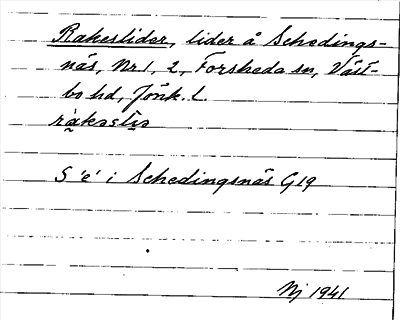 Rakeslider, lider å Schedings-
näs, Nr 1, 2, Forsheda sn, Väst-
bo hd, Jönk. l.
S 'e' i Schedingsnäs G 19
Nj 1941